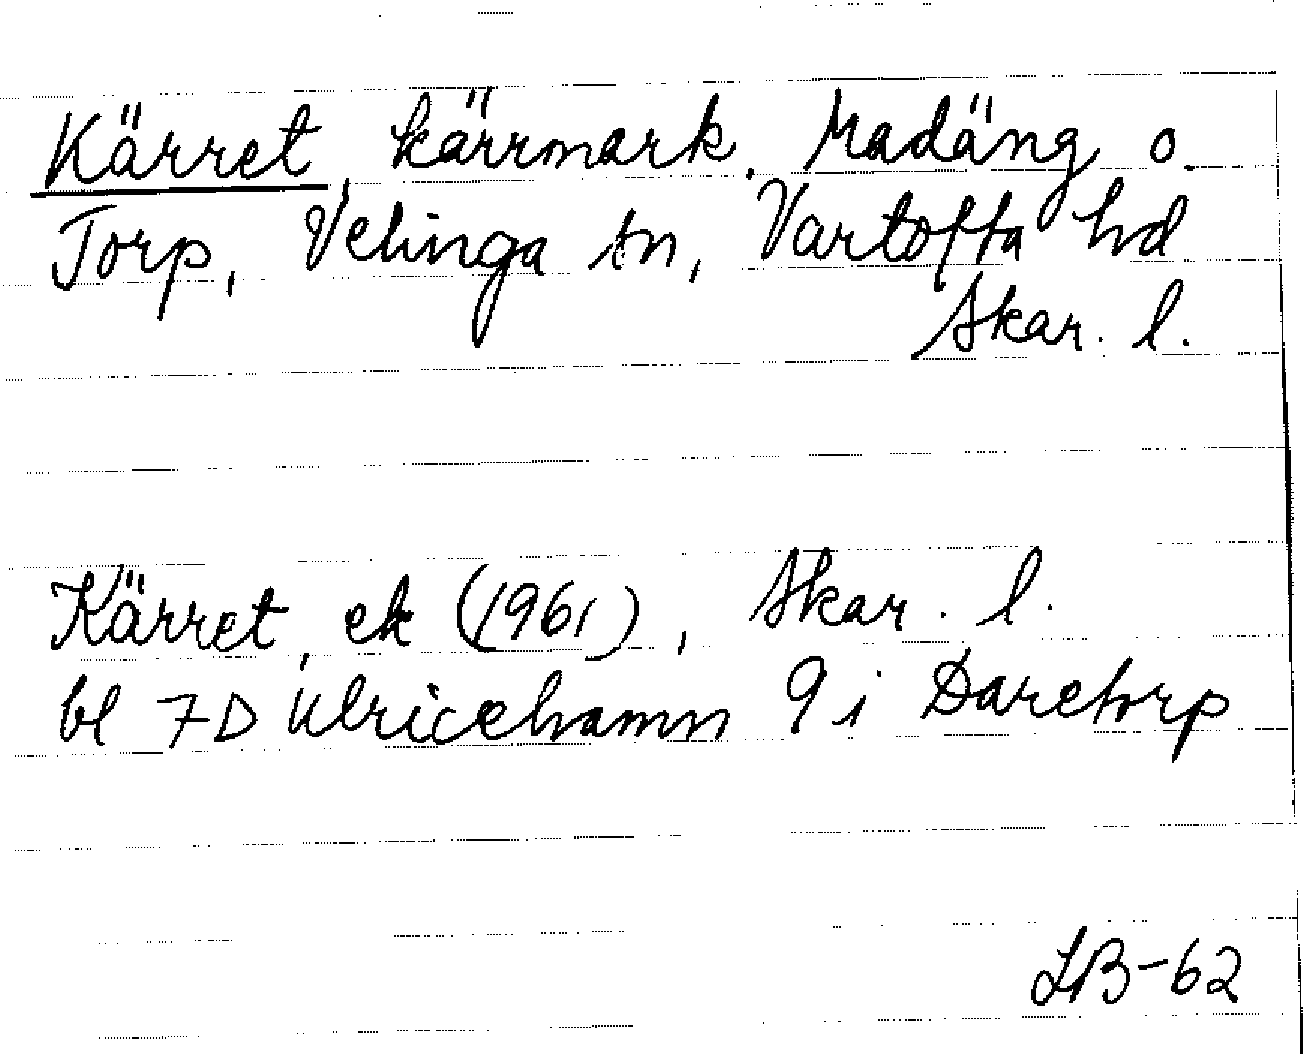 Kärret, kärrmark. Madäng o.
Torp, Velinga sn, Vartofta hd
Skar. l.
Kärret, ek (1961), Skar. l.
bl 7D Ulricehamn 9i Daretorp
LB-62